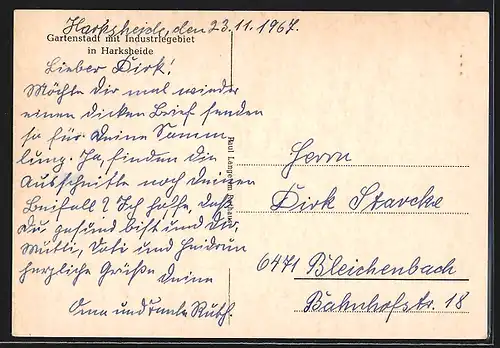 Harksheide, den 23.11.1967.
Gartenstadt mit Industriegebiet
in Harksheide
Lieber Dirk!
Möchte Dir mal wieder
einen dicken Brief senden
so für Deine Samm-
lung. Ja, finden die
Ausschnitte noch Deinen
Beifall? Ich hoffe, daß
Du gesund bist und Dir,
Mutti, Vati und Heidrun
herzliche Grüße
Deine
Oma und Tante Ruth.
Paul Lange
Herrn
Dirk Starcke
6471 Bleichenbach
Bahnhofstr. 18